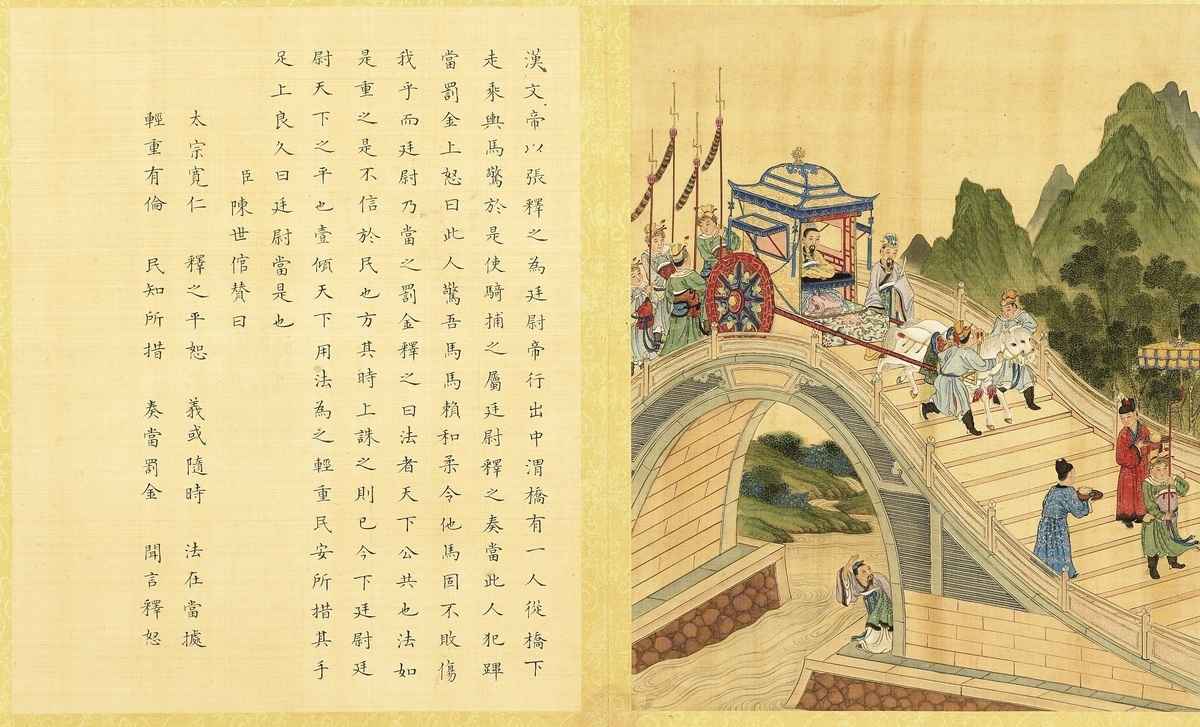 漢文帝以張釋之為廷尉帝行出中渭橋有一人從橋下
走乘輿馬驚於是使騎捕之屬廷尉釋之奏當此人犯蹕
當罰金上怒曰此人驚吾馬馬賴和柔令他馬固不敗傷
我乎而廷尉乃當之罰金釋之曰法者天下公共也法如
是重之是不信於民也方其時上誅之則已今下廷尉廷
尉天下之平也壹傾天下用法為之輕重民安所措其手
足上良久曰廷尉當是也
臣陳世倌贊曰
太宗寬仁 釋之平恕 義或隨時 法在當據
輕重有倫 民知所措 奏當罰金 開言釋怒